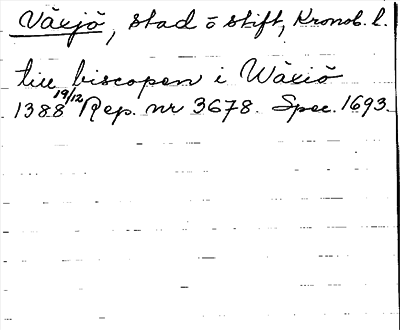 Växjö, stad ö stift, Kronob. l.
till biscopen i Wäxiö
1388 19/12 Rep. nr 3678. Spec. 1693.